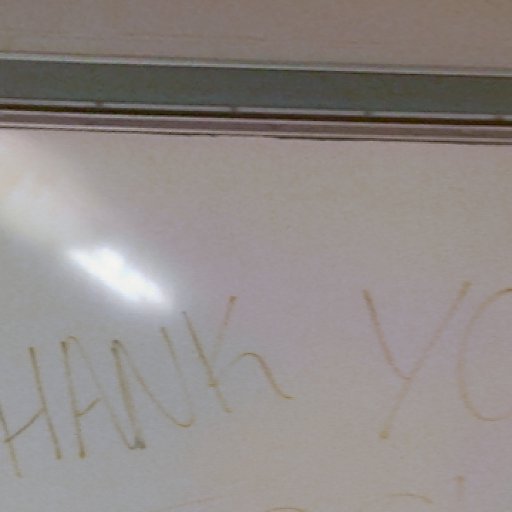 HANK YO